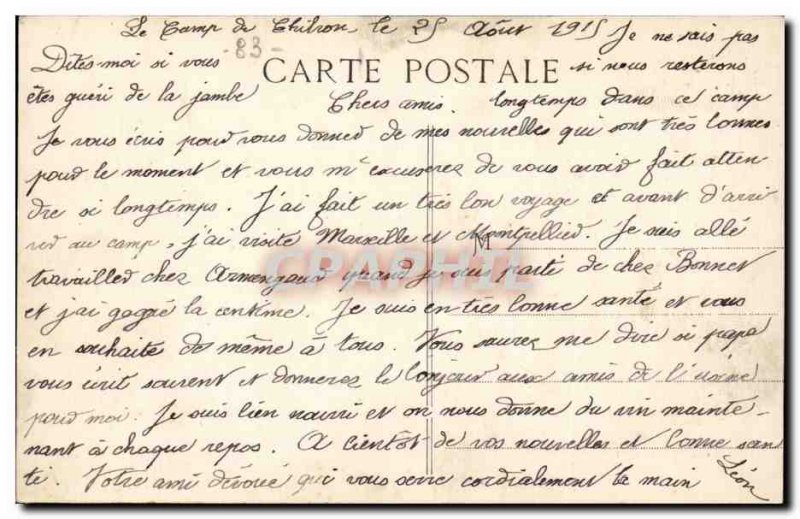 Le Camp de Chibron le 25 Août 1915
-83-
Je ne sais pas
si nous resterons
longtemps dans ce camp
Dites-moi si vous
êtes guéri de la jambe
CARTE POSTALE
Chers amis.
Je vous écris pour vous donner de mes nouvelles qui sont très bonnes
pour le moment et vous m'excuserez de vous avoir fait atten
dre si longtemps. J'ai fait un très bon voyage et avant d'arri
ver au camp, j'ai visité Marseille et Montpellier. Je suis allé
travailler chez Armengaud quand je suis parti de chez Bonnet
et j'ai gagné la centime. Je suis en très bonne santé et vous
en souhaite de même à tous. Vous saurez me dire si papa
vous écrit souvent et donnerez le bonjour aux amis de l'usine
pour moi. Je suis bien nourri et on nous donne du vin mainte-
nant à chaque repos. A bientôt de vos nouvelles et bonne san
té. Votre ami dévoué qui vous serre cordialement la main
Léon
CPAPHIL